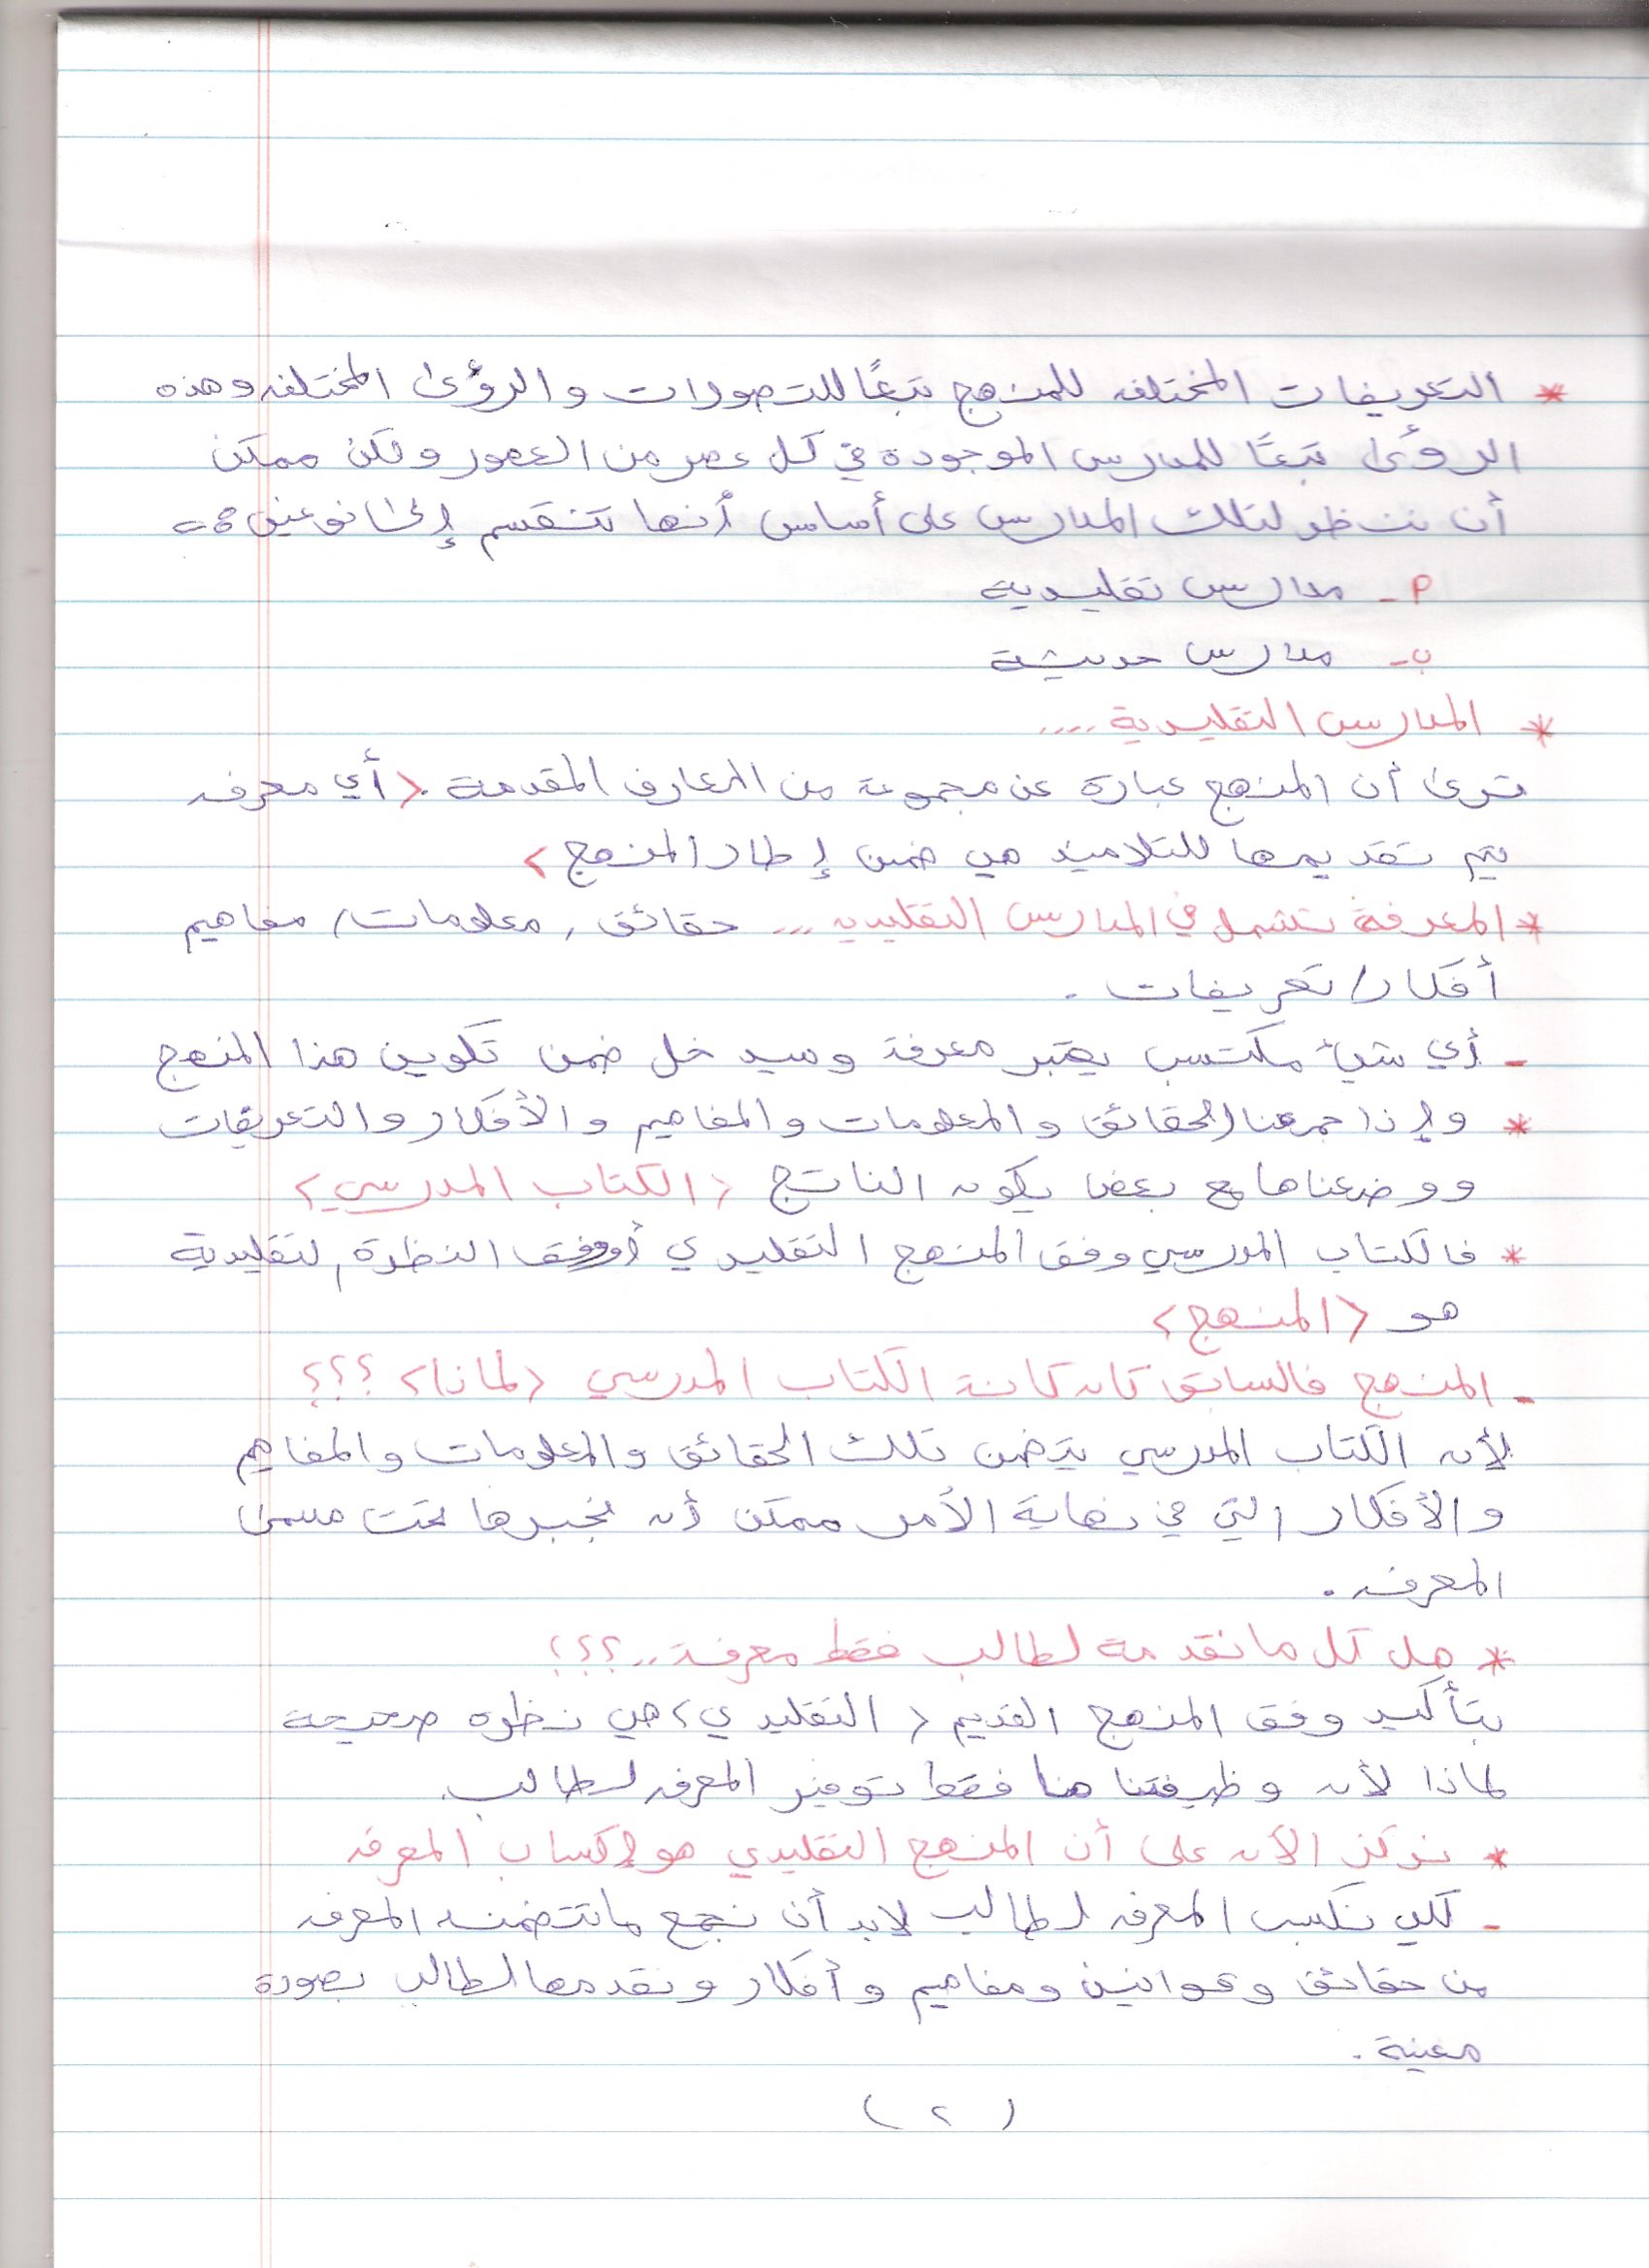 * التعريفات المختلفه للمنهج تبعًا للتصورات والرؤى المختلفه وهذه
الرؤى تبعًا للمدارس الموجودة في كل عصر من العصور ولكن ممكن
أن ننظر لتلك المدارس على أساس أنها تنقسم إلى نوعين :-
أ - مدارس تقليدية
ب - مدارس حديثة
* المدارس التقليدية ....
ترى أن المنهج عبارة عن مجموعة من المعارف المقدمة . < أي معرفه
يتم تقديمها للتلاميذ هي ضمن إطار المنهج >
* المعرفة تشمل في المدارس التقليديه ... حقائق , معلومات / مفاهيم
أفكار / تعريفات .
- أي شيء مكتسب يعتبر معرفة وسيدخل ضمن تكوين هذا المنهج
* وإذا جمعنا الحقائق والمعلومات والمفاهيم والأفكار والتعريفات
ووضعناها مع بعض يكون الناتج < الكتاب المدرسي >
* فالكتاب المدرسي وفق المنهج التقليدي أو وفق النظرة التقليدية
هو < المنهج >
- المنهج فالسابق كان كانة الكتاب المدرسي < لماذا > ؟؟؟
لأن الكتاب المدرسي يتضمن تلك الحقائق والمعلومات والمفاهيم
والأفكار التي في نهاية الأمر ممكن أن تحت مسمى
المعرفه .
* هل كل ما نقدمة لطالب فقط معرفة .. ؟؟؟
بتأكيد وفق المنهج القديم < التقليدي > هي نظره صحيحة
لماذا لأن وظيفتنا هنا فقط توفير المعرفه لطالب .
* نركز الآن على أن المنهج التقليدي هو إكساب المعرفه
- لكي نكسب المعرفه لطالب لابد أن نجمع ماتتضمنه المعرفه
من حقائق وقوانين ومفاهيم وأفكار ونقدمها لطالب بصورة
معينة .
( ٢ )